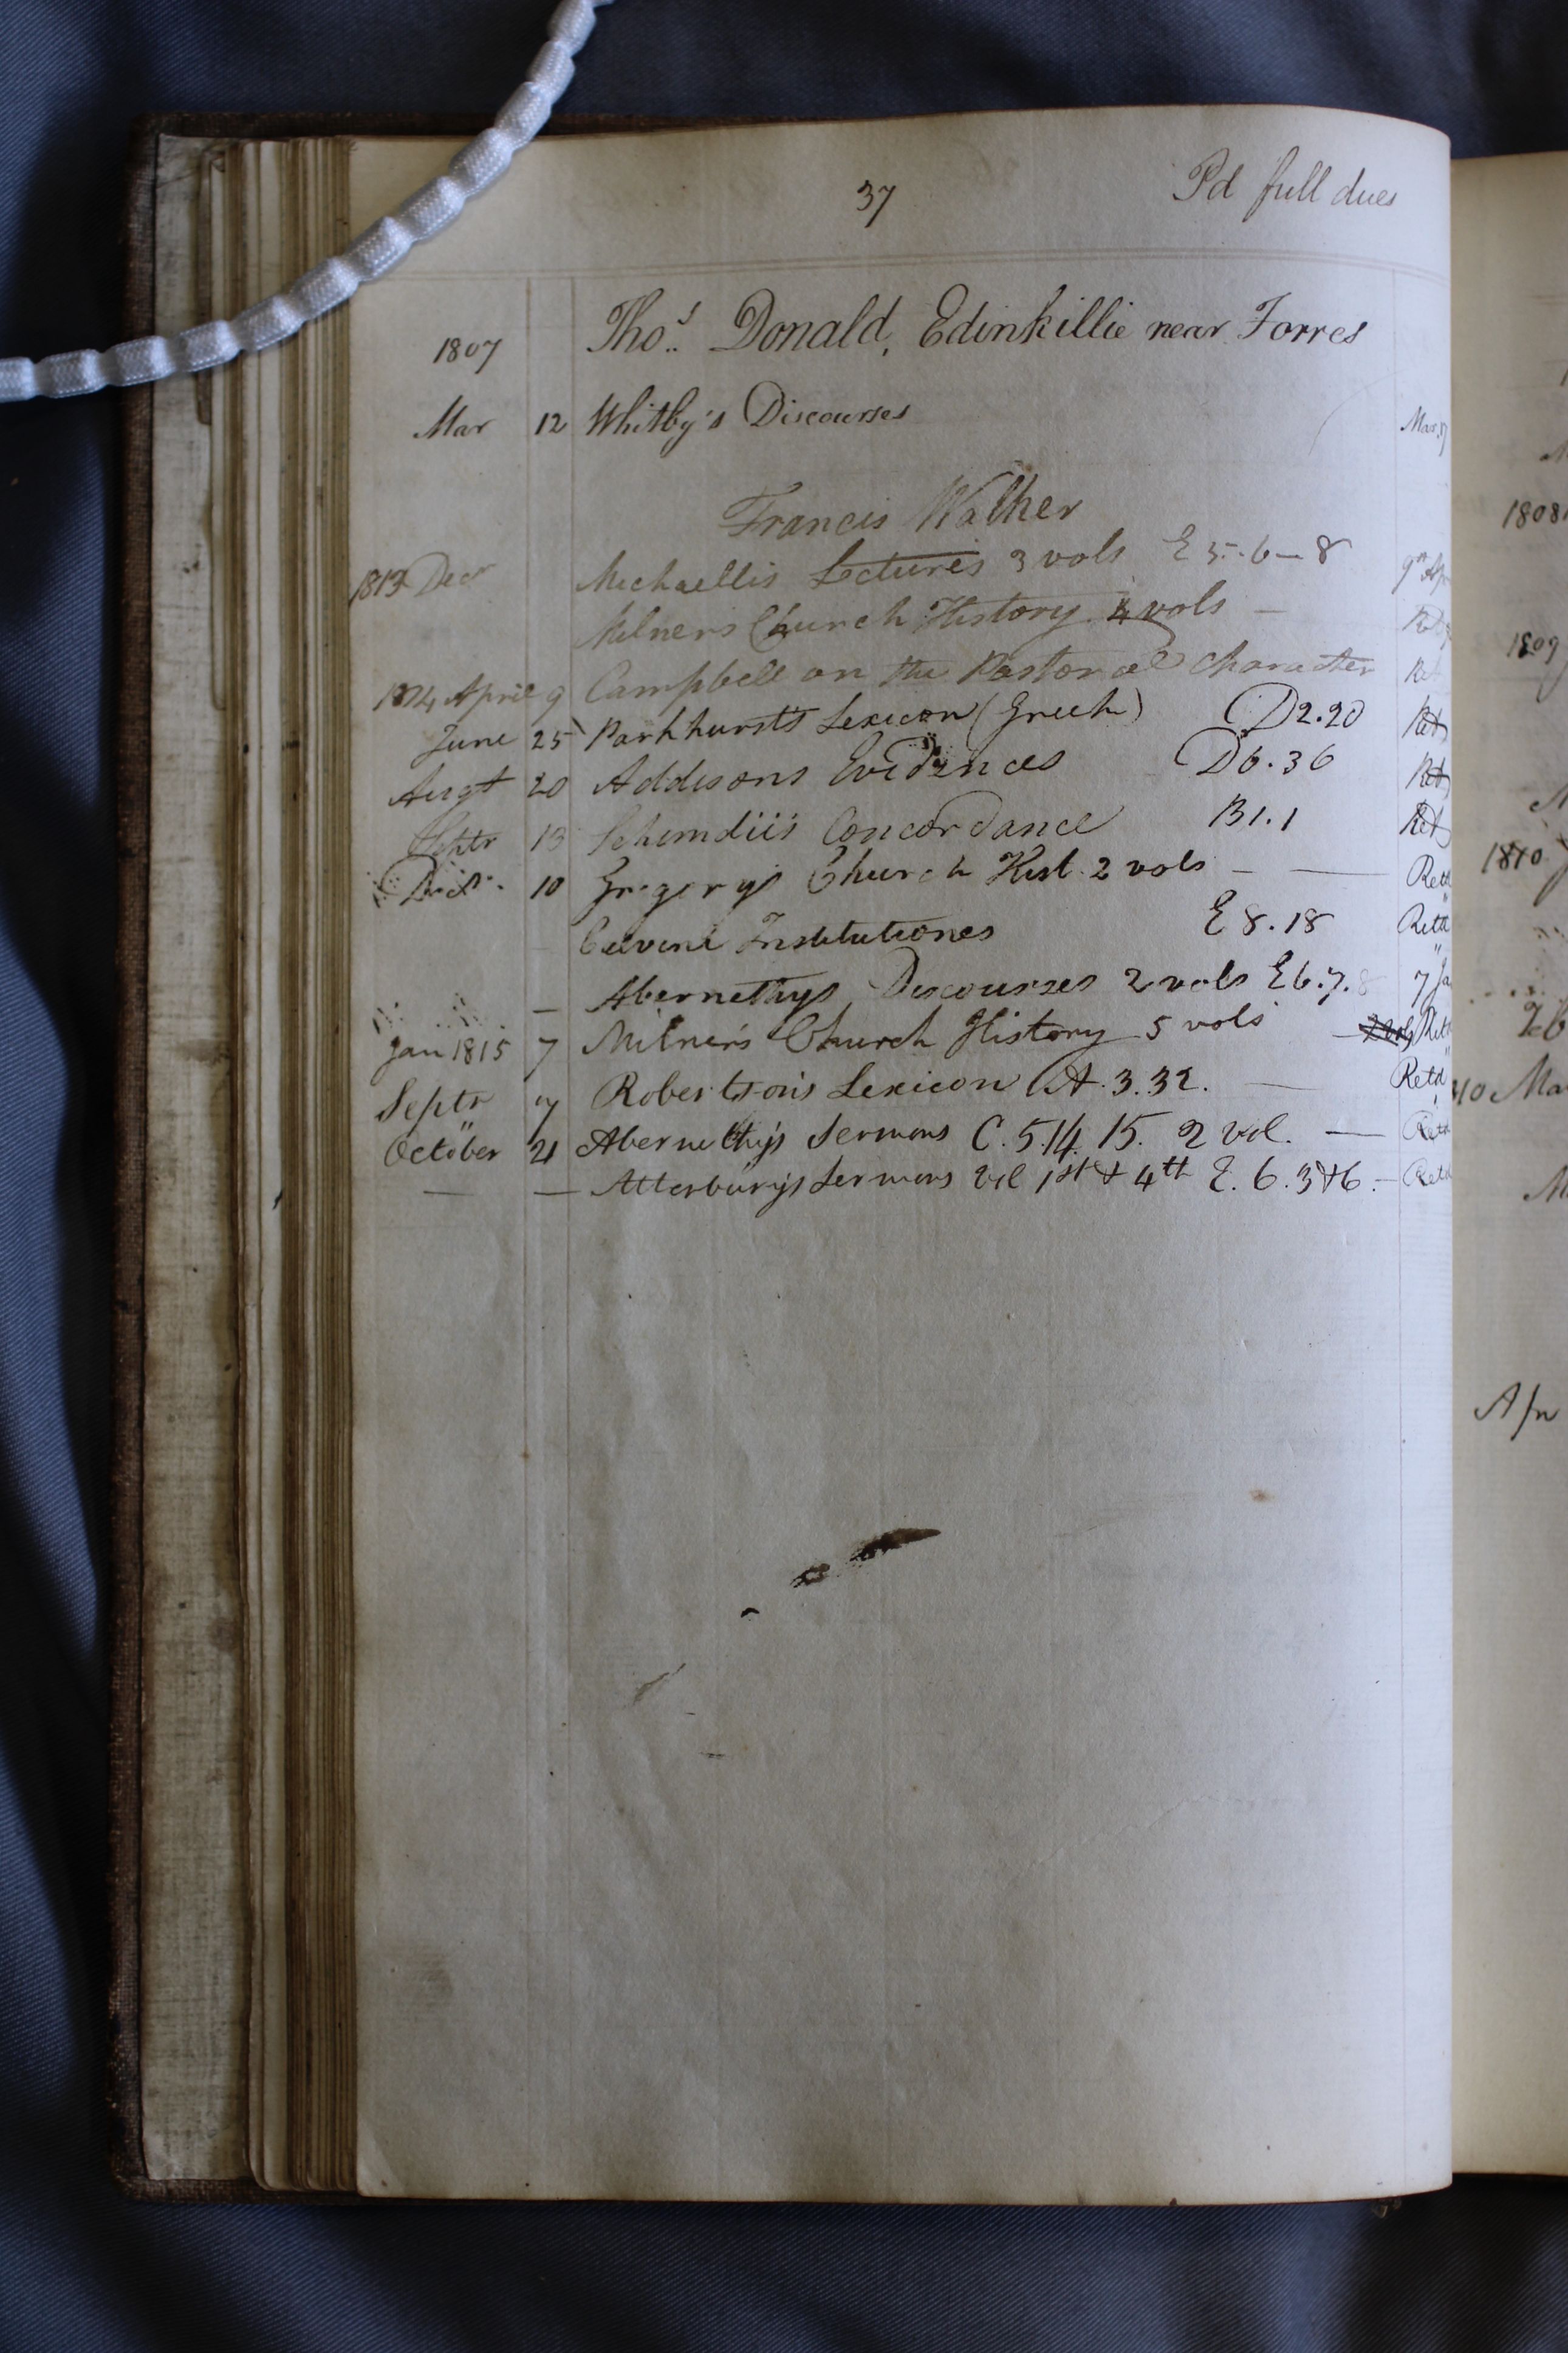 37 Pd full dues
1807 Thos. Donald, Edinkillie near Forres
Mar 12 Whitby's Discourses Mar.
Francis Walker
1813 Decr Michaellis Lectures 3 vols E 5.-6-8 9th Ap
Milners Church History 4 vols —
1814 April 9 Campbell on the Pastoral character Ret
June 25 Parkhurst's Lexicon (Greek) D2.20 Retd
Augt 20 Addisons Evidences D6.36 Retd
Septr 13 Schmidii's Concordance B1.1 Retd
Decr. 10 Gregory's Church Hist. 2 vols — — Retd
Calvini Institutiones E 8.18 Retd
— Abernethys Discourses 2 vols E6.7.8 7 Ja
Jan 1815 7 Milner's Church History 5 vols — Retd
Septr 7 Robertson's Lexicon A.3.32. — Retd
October 21 Abernethy's Sermons C.5.14.15. 2 vol. — Retd
— — Atterbury's Sermons Vol 1st & 4th E.6.3&6. — Retd
1808
1809
1810
Feb
10 Ma
M